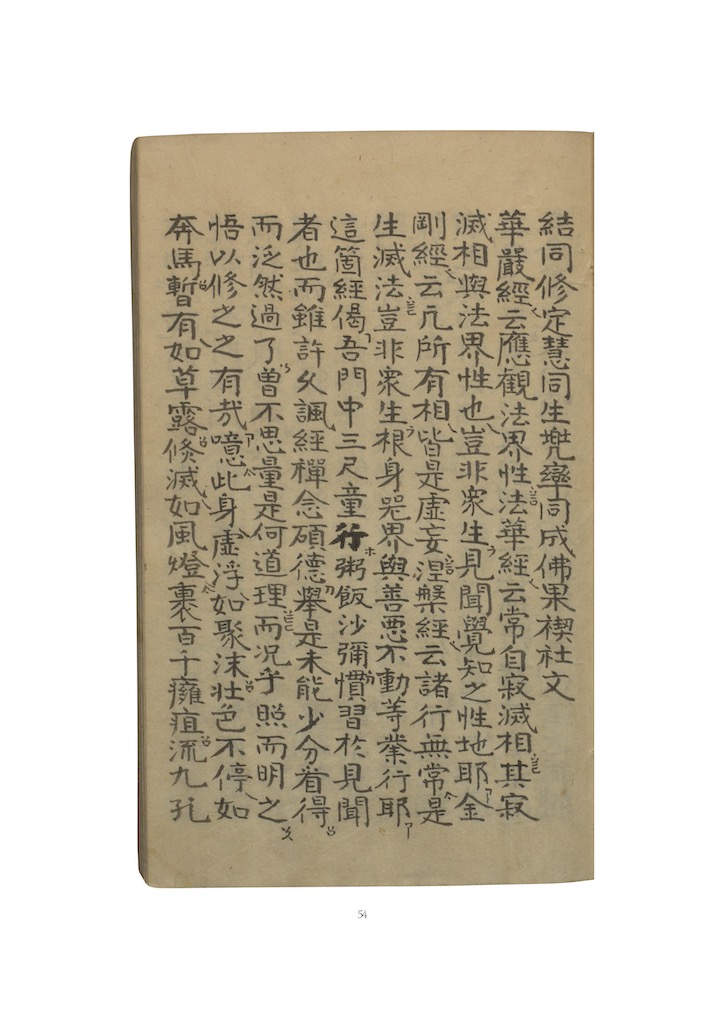 結同修定慧同生兠率同成佛果稧社文
華嚴經云應觀法界性法華經云常自寂滅相其寂
滅相與法界性也豈非衆生見聞覺知之性地耶金
剛經云凢所有相皆是虛妄涅槃經云諸行無常是
生滅法豈非衆生根身器界與善悪不動等業行耶
這箇經偈吾門中三尺童行粥飯沙彌慣習於見聞
者也而雖許久諷經禪念碩德舉是未能少分着得
而泛然過了曽不思量是何道理而况乎照而明之
悟以修之之有㢤噫此身虛浮如聚沫壮色不停如
奔馬暫有如草露倏滅如風燈裹百千癰疽流九孔
54